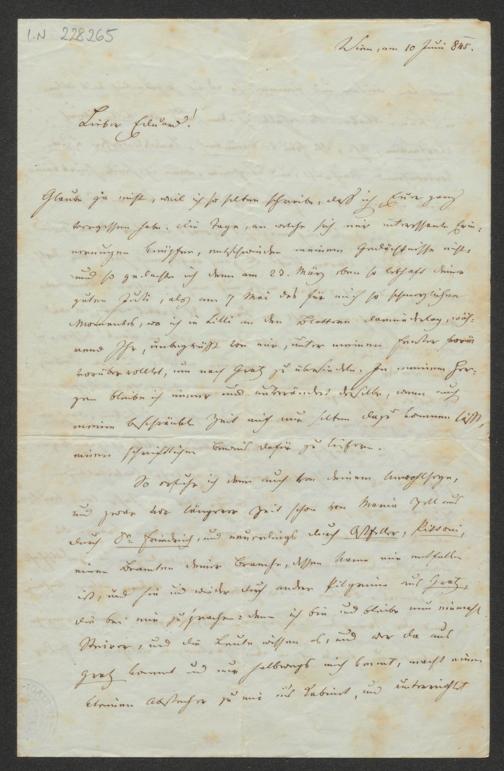 I.N 228265
Wien, am 10 Juni 845.
Lieber Eduard!
Glaube ja nicht, weil ich so selten schreibe, daß ich Eure ganz
vergessen habe. Die Tage, an welche sich mir interessante Erin-
nerungen knüpfen, entschwinden meinem Gedächtnisse nicht,
und so gedachte ich denn am 23. März eben so lebhaft deiner
guten Juli, als am 7 Mai des für mich so schmerzlichen
Momentes, wo ich in Cilli an den Blattern darniederlag, wäh-
rend Ihr, unbegrüßt von mir, unter meinem Fenster
vorüber rolltet, um nach Gratz zu übersiedeln. In meinem Her-
zen bleibe ich immer und unverändert derselbe, wenn auch
meine beschränkte Zeit mich nur selten dazu kommen läßt,
einen schriftlichen Beweis dafür zu liefern.
So erfuhr ich denn auch von deinem Unwohlseyn,
und zwar vor längerer Zeit schon von Maria Zell aus
durch Dr Friedrich, und neuerdings durch
einen Beamten deiner Branche, dessen Name mir entfallen
ist, und hie und wieder durch andere Pilgrime aus Gratz,
die bei mir zusprachen: denn ich bin und bleibe nun einmahl
Steirer, und die Leute wissen es, und wer da aus
Gratz kommt und mich halbwegs kennt, macht einen
kleinen Abstecher zu mir ins Cabinet, und unterrichtet